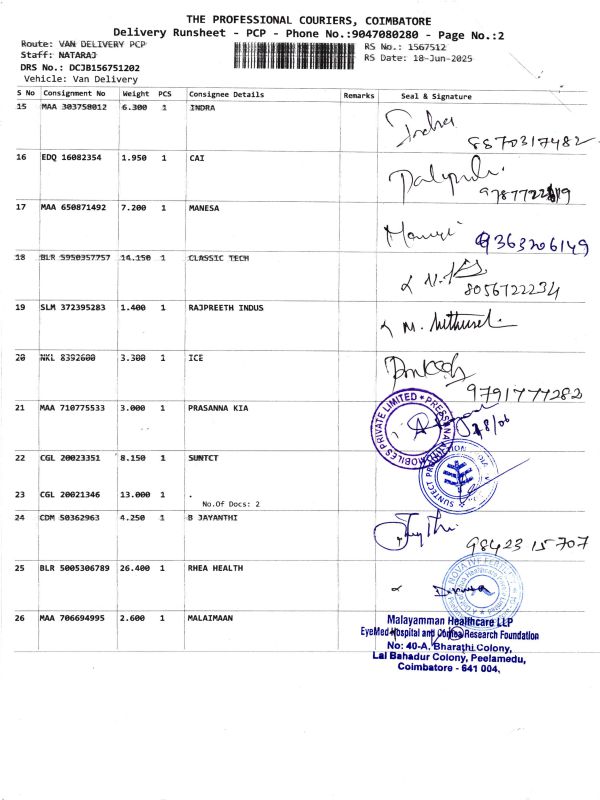 THE PROFESSIONAL COURIERS, COIMBATORE
Delivery Runsheet - PCP - Phone No.:9047080280 - Page No.:2
Route: VAN DELIVERY PCP
RS No.: 1567512
Staff: NATARAJ
RS Date: 18-Jun-2025
DRS No.: DCJB156751202
Vehicle: Van Delivery
S No Consignment No Weight PCS Consignee Details Remarks Seal & Signature
15 MAA 303758012 6.300 1 INDRA
Indra
8870317482
16 EDQ 16082354 1.950 1 CAI
17 MAA 650871492 7.200 1 MANESA
9363206149
18 BLR 5950357757 14.150 1 CLASSIC TECH
8056722234
19 SLM 372395283 1.400 1 RAJPREETH INDUS
20 NKL 8392600 3.300 1 ICE
9791777282
21 MAA 710775533 3.000 1 PRASANNA KIA
MOBILES PRIVATE LIMITED
18/06
22 CGL 20023351 8.150 1 SUNTCT
23 CGL 20021346 13.000 1 .
No.Of Docs: 2
24 CDM 50362963 4.250 1 B JAYANTHI
98423 15707
25 BLR 5005306789 26.400 1 RHEA HEALTH
26 MAA 706694995 2.600 1 MALAIMAAN
Malayamman Healthcare LLP
EyeMed Hospital and Research Foundation
No: 40-A, Bharathi Colony,
Lal Bahadur Colony, Peelamedu,
Coimbatore - 641 004.